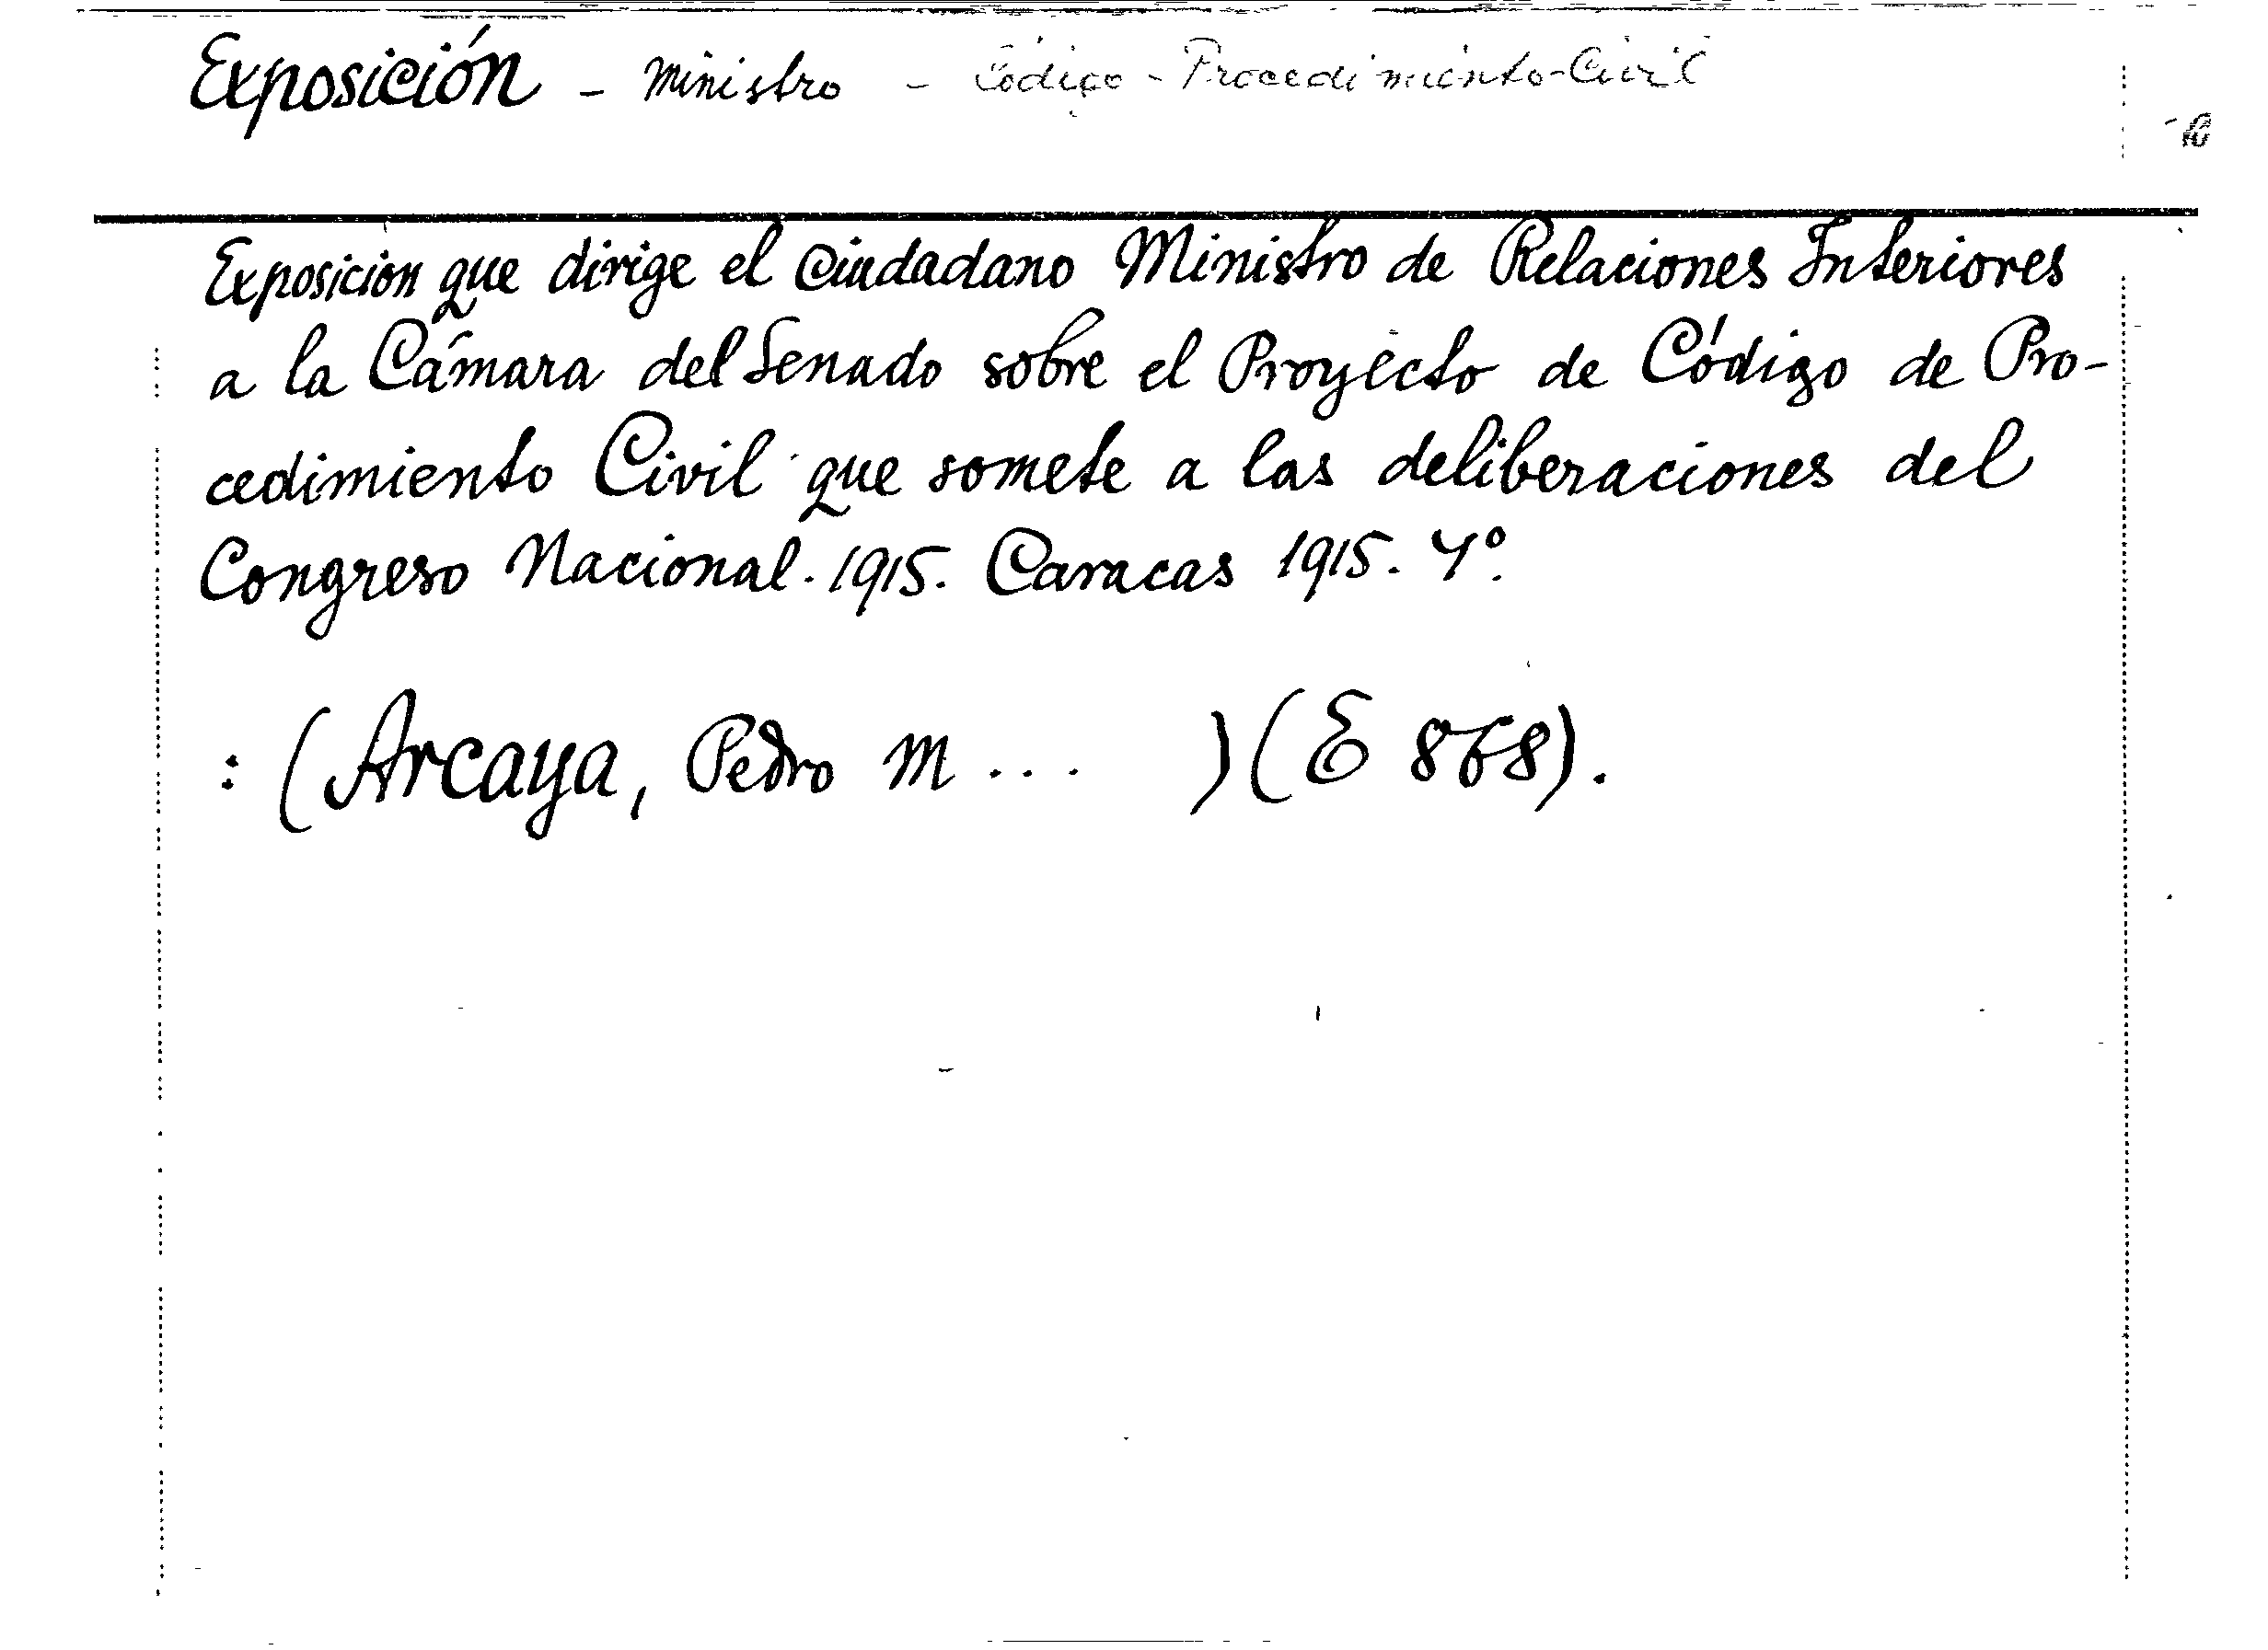 Exposición - Ministro - Código - Procedimiento-Civil
Exposición que dirige el Ciudadano Ministro de Relaciones Interiores
a la Cámara del Senado sobre el Proyecto de Código de Pro-
cedimiento Civil que somete a las deliberaciones del
Congreso Nacional. 1915. Caracas 1915. 4º.
: (Arcaya, Pedro M... ) (E 868).